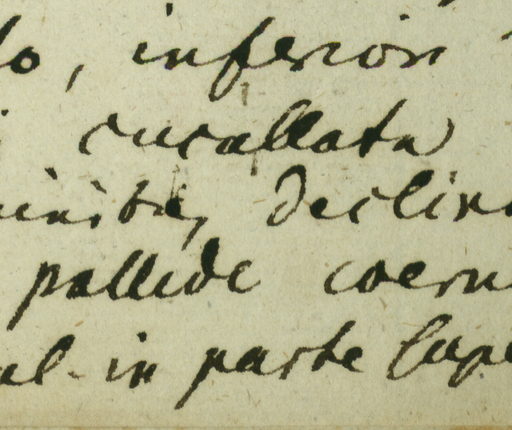 lo, inferiori
cucallata
declina
pallide coeru
in parte supe